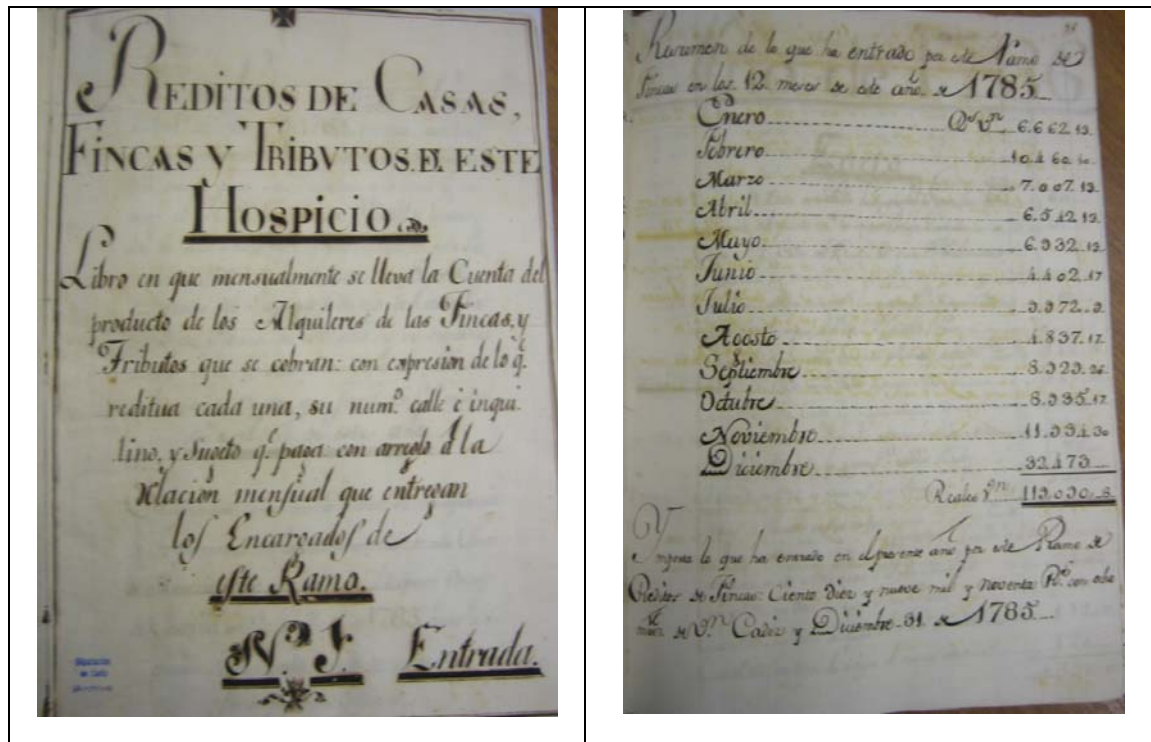 REDITOS DE CASAS,
FINCAS Y TRIBVTOS. DE ESTE
HOSPICIO.
Libro en que mensualmente se lleva la Cuenta del
producto de los Alquileres de las Fincas, y
Tributos que se cobran: con expresion de lo q.
reditua cada una, su num.º calle è inqui
lino, y Sugeto q.e paga: con arreglo a la
Relacion mensual que entregan
los Encargados de
este Ramo.
N.º 1. Entrada.
Diputación
de Cádiz
Resumen de lo que ha entrado por este Ramo de
Fincas en los 12 meses de este año de 1785
Enero R.s V.n 6.662.13.
Febrero 10.460.10.
Marzo 7.007.13.
Abril 6.542.12.
Mayo 6.932.12
Junio 4.402.17
Julio 9.972..9.
Agosto 4.837.17.
Septiembre 8.929.26.
Octubre 8.935.17
Noviembre 11.934.30
Diciembre 32.473
Reales V.on 119.090..8.
Y importa lo que ha entrado en el presente año por este Ramo de
Reditos de Fincas: Ciento Diez y nueve mil y noventa R.s con ocho
mrs. de V.n Cadiz y Diciembre 31. de 1785